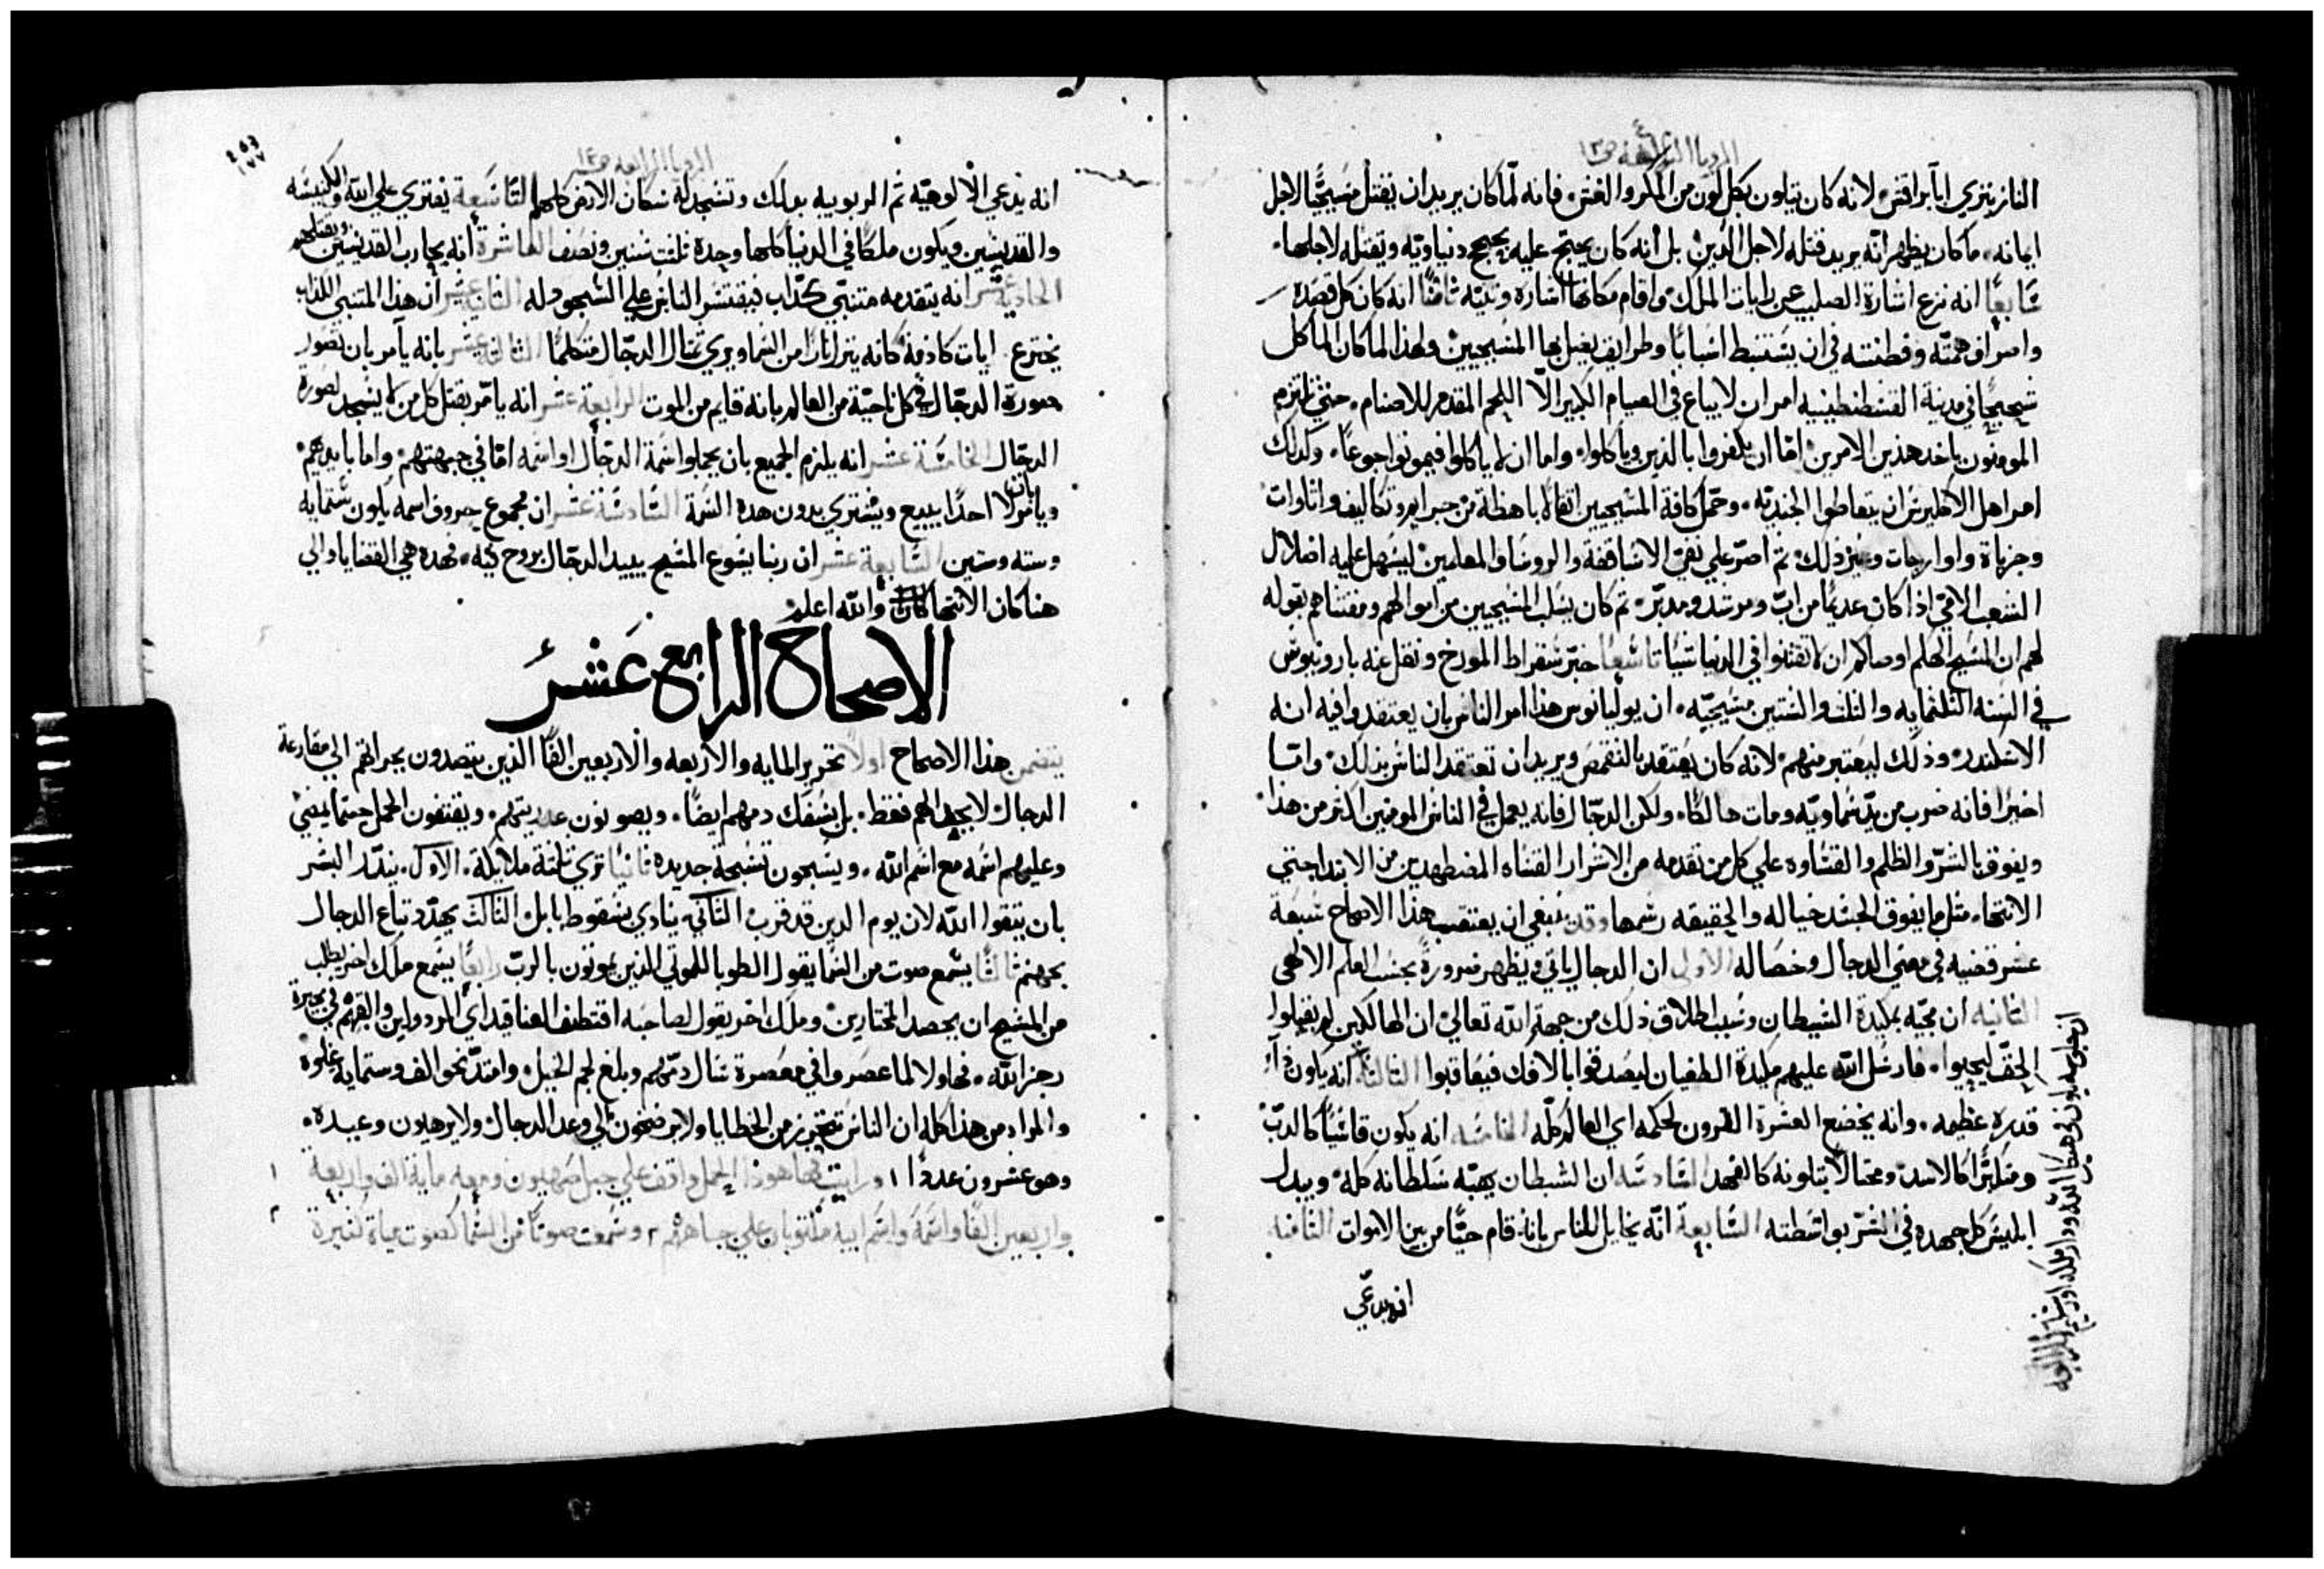 الرويا الرابعه ص١٣
الناز يتزي ابا براقش لانه كان يتلون بكل لون من المكر والغش فانه لما كان يريد ان يقتل مسيحيًا لاجل
ايمانه ما كان يظهر انه يريد قتله لاجل الدين بل انه كان يحتج عليه بحجج دنياويّه ويقتله لاجلها
سابعًا انه نزع اشارة الصليب عن رايات الملك واقام مكانها اشاره وثنيّه ثامنًا انه كان كل قصده
واصراف همته وفطنته في ان يستنبط اسبابًا وطرايف يغيل بها المسيحيين ولهذا لما كان الماكل
شحيحًا في مدينة القسطنطينيه امر ان لا يباع في الصيام الكبير الّا اللحم المقدم للاصنام حتي يلتزم
المومنون باحد هذين الامرين امّا ان يكفروا بالدين وياكلوا واما ان لا ياكلوا فيموتوا جوعًا وكذلك
امر اهل الاكليرس ان يتعاطوا الجنديّه وحمّل كافة المسيحيين اثقالًا باهظة من جبر ايم وتكاليف واتاوات
وجزياة واوارجات وغير ذلك ثم اصرّ علي نفي الاساقفة والروسا والمعلمين ليسهل عليه اضلال
الشعب الامّي اذا كان عديمًا من ابّ ومرشد ومدبّر ثم كان يسلب المسيحيين من اموالهم ومقتناهم بقوله
لهم ان المسيح الهكم اوصاكم ان لا تقتنوا في الدنيا شيًا تاسعًا خبّر سقراط المورخ ونقل عنه بارونيوس
في السنه الثلثمايه والثلث والستين مسيحيّه ان يوليانوس هذا امر الناس بان يعتقدوا فيه انه
الاسكندر وذلك ليعتبر منهم لانه كان يعتقد بالتقمص ويريد ان تعتقد الناس بذلك وامّا
اخيرًا فانه ضرب من يدّ سماويّه ومات هالكًا ولكن الدجّال فانه يعمل في الناس المومنين اكثر من هذا
ويفوق بالشرّ والظلم والقساوه علي كل من تقدمه من الاشرار القساه المضطهدين من الابتدا حتي
الانتها مثل ما يفوق الجسد خياله والحقيقه رسمها وقد ينبغي ان يعتقب هذا الاصحاح سبعة
عشر قضيه في معني الدجال وخصاله الاولي ان الدجال ياتي ويظهر ضرورةً بحسب العلم الالهي
الثانيه ان مجيّه بمكيدة الشيطان وسبب اطلاق ذلك من جهة الله تعالي ان الهالكين لم يقبلوا
الحقّ ليحيوا فارسل الله عليهم مكيدة الطغيان ليصدقوا بالافك فيعاقبوا الثالثة انه يكون ذا
قدره عظيمه وانه يخضع العشرة القرون لحكمه اي العالم كلّه الخامسه انه يكون قاسيًا كالدبّ
ومتكبّرًا كالاسد ومحتالًا بتلونه كالفهد السادسه ان الشيطان يهبّه سلطانه كله ويبدل
ابليس كل جهده في الشرّ بواسطته السابعة انّه يخايل للناس بانه قام حيًّا من بين الاموات الثامنة
انه يدعي
الرويا الرابعه ص١٤
٤٥٣
١٧٧
انه يدعي الالوهيّه ثم الربوبيه بذلك وتسجد له سكان الارض كلهم التاسعة يفتري علي الله والكنيسه
والقديسين ويكون ملكًا في الدنيا كلها وحده ثلثت سنين ونصف العاشرة انه يحارب القديسين ويغلبهم
الحادية عشر انه يتقدمه متنبّي كذاب فيغتش الناس علي السجود له الثانية عشر ان هذا المتنبي الكذاب
يخترع ايات كاذبه كانه ينزل نارًا من السما ويري تمثال الدجّال متكلمًا الثالثة عشر بانه يامر بان تصور
صورة الدجّال في كل ناحيّة من العالم بانه قايم من الموت الرابعة عشر انه يامر بقتل كل من لا يسجد لصورة
الدجّال الخامسة عشر انه يلزم الجميع بان يحملوا سمة الدجال او اسمه امّا في جبهتهم واما بايديهم
ويامر بان لا احدًا يبيع ويشتري بدون هذه السمة السادسة عشر ان مجموع حروف اسمه يكون ستمايه
وسته وستين السابعة عشر ان ربنا يسوع المسيح يبيد الدجّال بروح فيه فهذه هي القضايا والي
هنا كان الانتها والله اعلم
الاصحاح الرابع عشر
يتضمن هذا الاصحاح اولًا تحرير المايه والاربعه والاربعين الفًا الذين يتصدون بجراتهم الي مقارعة
الدجال لا بجهادهم فقط بل بسفك دمهم ايضًا ويصونون عذريتهم ويقتفون الحمل حيثما يمضي
وعليهم اسمه مع اسم الله ويسبحون تسبحة جديده ثانيًا تري ثلثة ملايكة الاول ينذر البشر
بان يتقوا الله لان يوم الدين قد قرب الثاني ينادي بسقوط بابل الثالث يهدّد تباع الدجال
بجهنم ثالثًا يسمع صوت من السما يقول الطوبا للموتي الذين يموتون بالربّ رابعًا يسمع ملك اخر يطلب
من المسيح ان يحصد المختارين وملك اخر يقول لصاحبه اقتطف العناقيد اي المردولين والقهم في بحيرة
رجز الله فهاولا لما عصروا في معصرة سال دمّهم وبلغ لجم الخيل وامتدّ نحو الف وستمايه غلوه
والمراد من هذا كله ان الناس تتحرز من الخطايا ولا يرضخون الي وعد الدجال ولا يرهبون وعيده
وهو عشرون عددًا ١ ورايت فها هوذا الحمل واقف علي جبل صهيون ومعه ماية الف واربعة
واربعين الفًا واسمه واسم ابيه مكتوبان علي جباههم ٢ وسمعت صوتًا من السما كصوت مياة كثيرة